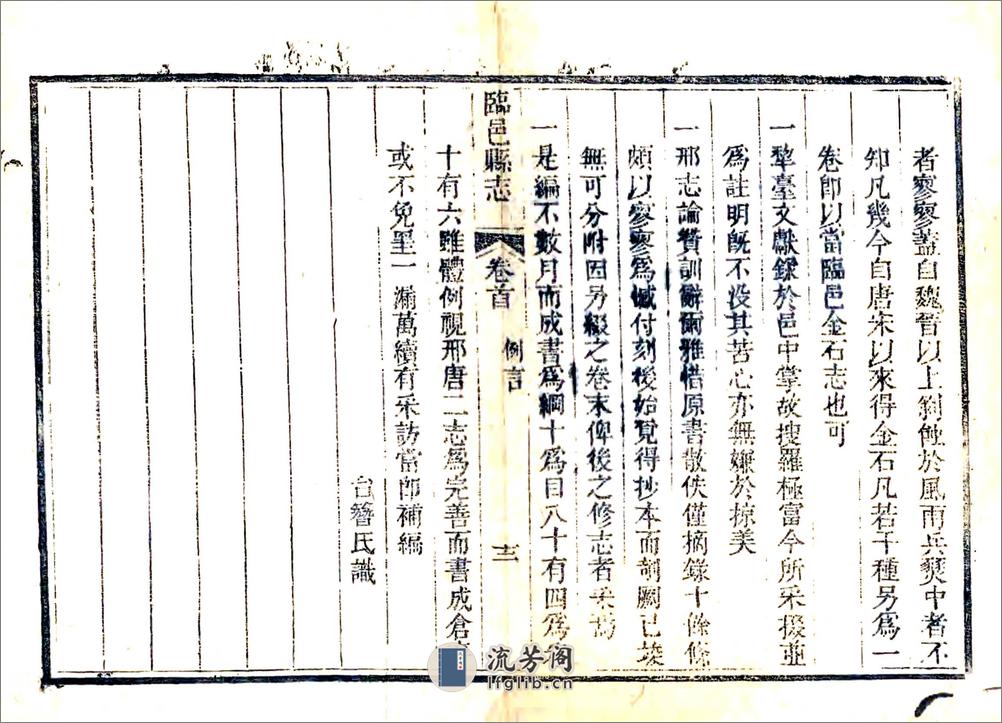 者寥寥蓋自魏晉以上剝蝕於風雨兵燹中者不
知凡幾今自唐宋以來得金石凡若干種另為一
卷即以當臨邑金石志也可
一犂臺文獻錄於邑中掌故搜羅極富今所采掇並
為註明旣不没其苦心亦無嫌於掠美
一邢志論贊訓辭爾雅惜原書散佚僅摘錄十餘條
頗以寥寥爲憾付刻後始覺得抄本而剞劂已竣
無可分附因另綴之卷末俾後之修志者采焉
一是編不數月而成書爲綱十爲目八十有四爲
臨邑縣志
卷首
例言
十二
十有六雖體例視邢唐二志爲完善而書成倉
或不免罣一漏萬續有采訪當卽補編
台簪氏識
流芳阁
lfglib.cn